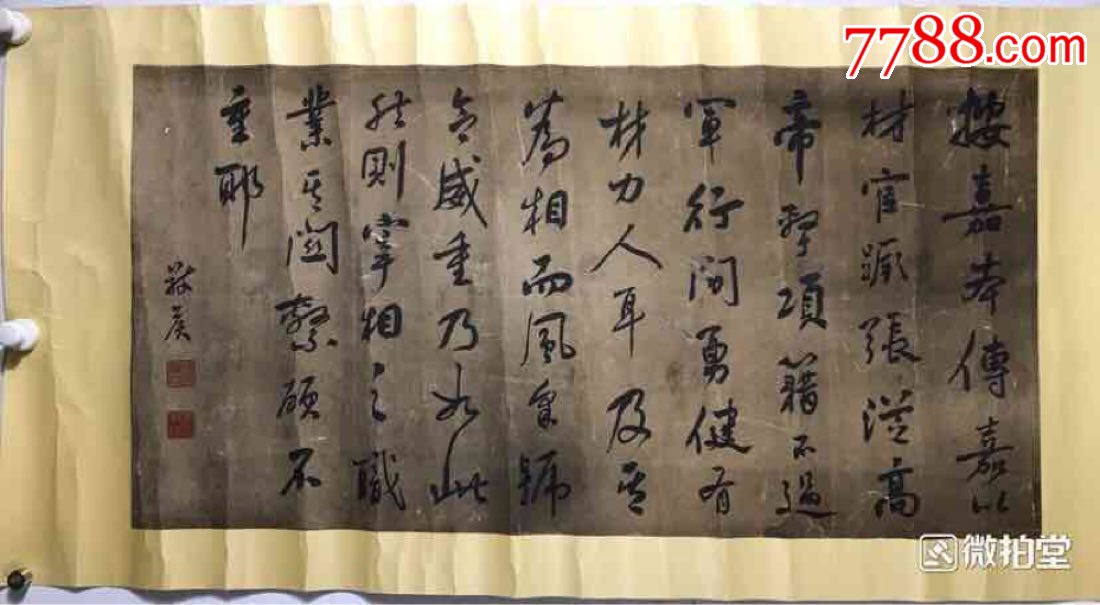 按嘉本傳嘉以
材官蹶張從高
帝擊項籍不過
軍行間勇健有
材力人耳及其
為相而風采號
令威重乃如此
然則宰相之職
業其關繫顧不
重耶
7788.com
微拍堂